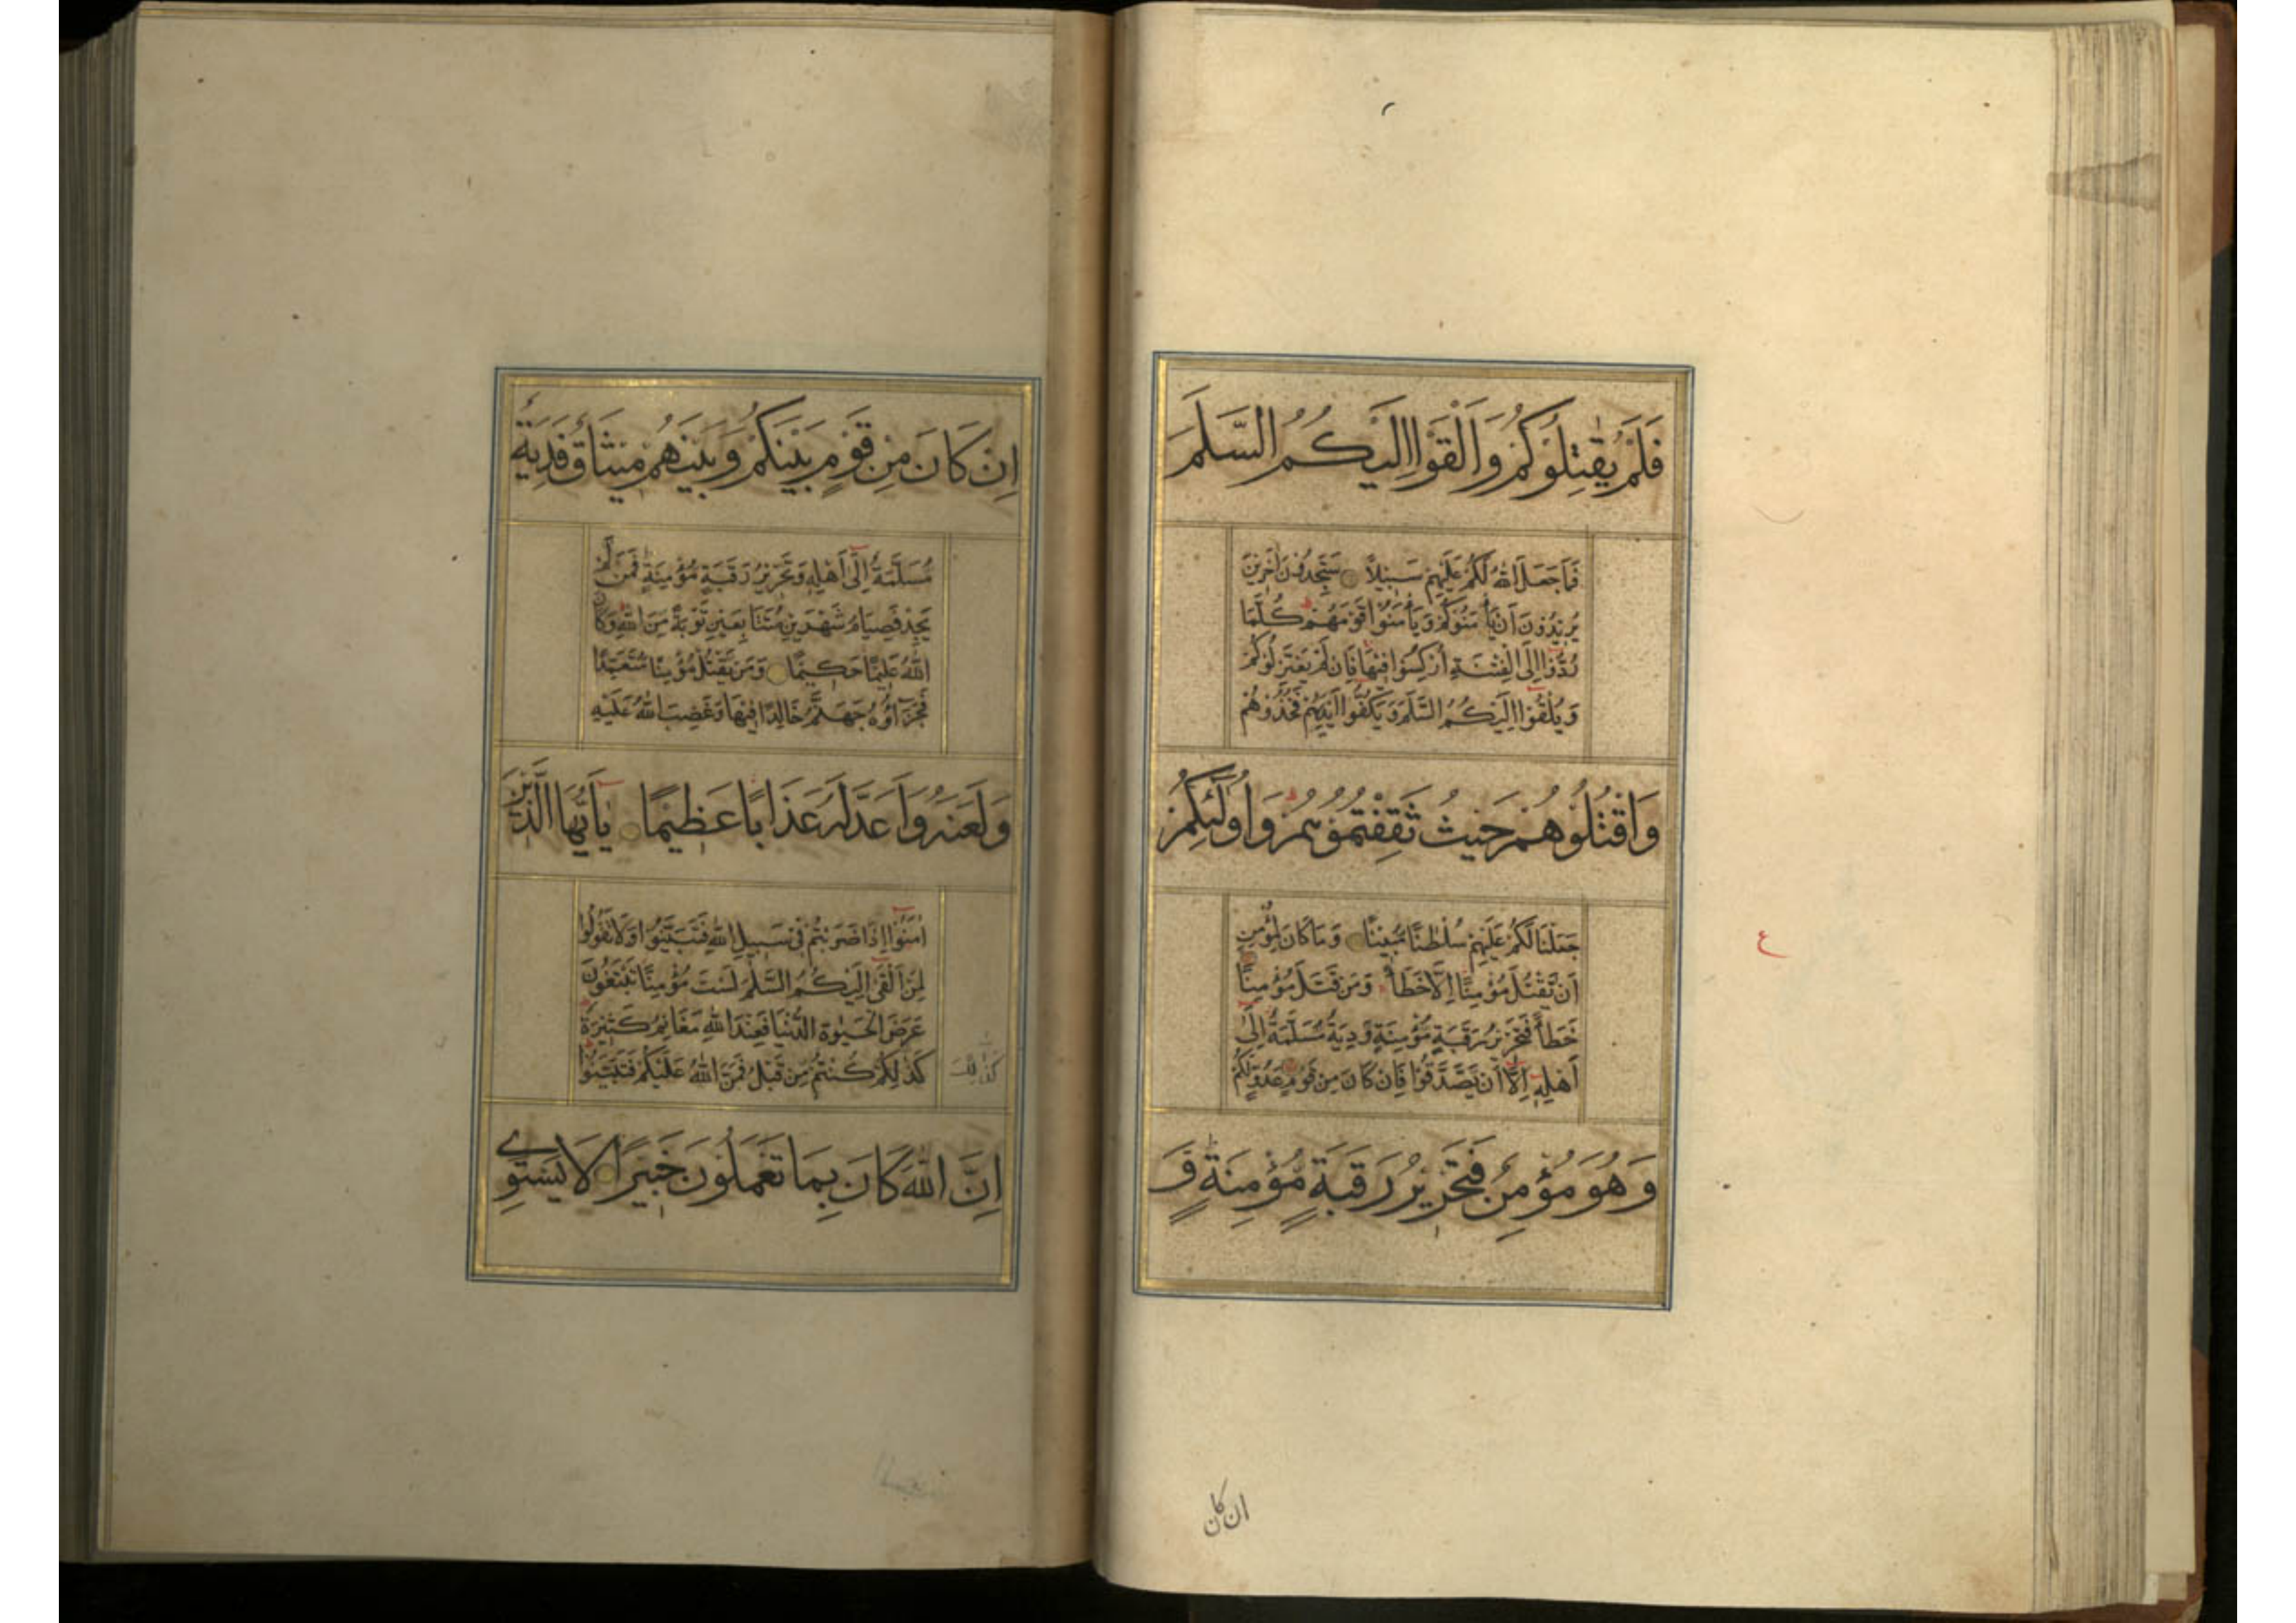 فَلَمْ يُقٰتِلُوْكُمْ وَاَلْقَوْا اِلَيْكُمُ السَّلَمَ
فَمَا جَعَلَ اللّٰهُ لَكُمْ عَلَيْهِمْ سَبِيْلًا سَتَجِدُوْنَ اٰخَرِيْنَ
يُرِيْدُوْنَ اَنْ يَأْمَنُوْكُمْ وَيَأْمَنُوْا قَوْمَهُمْ كُلَّمَا
رُدُّوْا اِلَى الْفِتْنَةِ اُرْكِسُوْا فِيْهَا فَاِنْ لَمْ يَعْتَزِلُوْكُمْ
وَيُلْقُوْا اِلَيْكُمُ السَّلَمَ وَيَكُفُّوْا اَيْدِيَهُمْ فَخُذُوْهُمْ
وَاقْتُلُوْهُمْ حَيْثُ ثَقِفْتُمُوْهُمْ وَاُولٰئِكُمْ
جَعَلْنَا لَكُمْ عَلَيْهِمْ سُلْطٰنًا مُبِيْنًا وَمَا كَانَ لِمُؤْمِنٍ
اَنْ يَّقْتُلَ مُؤْمِنًا اِلَّا خَطَأً وَمَنْ قَتَلَ مُؤْمِنًا
خَطَأً فَتَحْرِيْرُ رَقَبَةٍ مُؤْمِنَةٍ وَدِيَةٌ مُسَلَّمَةٌ اِلٰى
اَهْلِهٖ اِلَّا اَنْ يَصَّدَّقُوْا فَاِنْ كَانَ مِنْ قَوْمٍ عَدُوٍّ لَكُمْ
وَهُوَ مُؤْمِنٌ فَتَحْرِيْرُ رَقَبَةٍ مُؤْمِنَةٍ وَ
ع
ان كان
اِنْ كَانَ مِنْ قَوْمٍ بَيْنَكُمْ وَبَيْنَهُمْ مِيْثَاقٌ فَدِيَةٌ
مُسَلَّمَةٌ اِلٰى اَهْلِهٖ وَتَحْرِيْرُ رَقَبَةٍ مُؤْمِنَةٍ فَمَنْ لَمْ
يَجِدْ فَصِيَامُ شَهْرَيْنِ مُتَتَابِعَيْنِ تَوْبَةً مِنَ اللّٰهِ وَكَانَ
اللّٰهُ عَلِيْمًا حَكِيْمًا وَمَنْ يَقْتُلْ مُؤْمِنًا مُتَعَمِّدًا
فَجَزَآؤُهٗ جَهَنَّمُ خَالِدًا فِيْهَا وَغَضِبَ اللّٰهُ عَلَيْهِ
وَلَعَنَهٗ وَاَعَدَّ لَهٗ عَذَابًا عَظِيْمًا يٰاَيُّهَا الَّذِيْنَ
اٰمَنُوْا اِذَا ضَرَبْتُمْ فِيْ سَبِيْلِ اللّٰهِ فَتَبَيَّنُوْا وَلَا تَقُوْلُوْا
لِمَنْ اَلْقٰى اِلَيْكُمُ السَّلٰمَ لَسْتَ مُؤْمِنًا تَبْتَغُوْنَ
عَرَضَ الْحَيٰوةِ الدُّنْيَا فَعِنْدَ اللّٰهِ مَغَانِمُ كَثِيْرَةٌ
كَذٰلِكُمْ كُنْتُمْ مِنْ قَبْلُ فَمَنَّ اللّٰهُ عَلَيْكُمْ فَتَبَيَّنُوْا
كَذٰلِكَ
اِنَّ اللّٰهَ كَانَ بِمَا تَعْمَلُوْنَ خَبِيْرًا لَا يَسْتَوِي